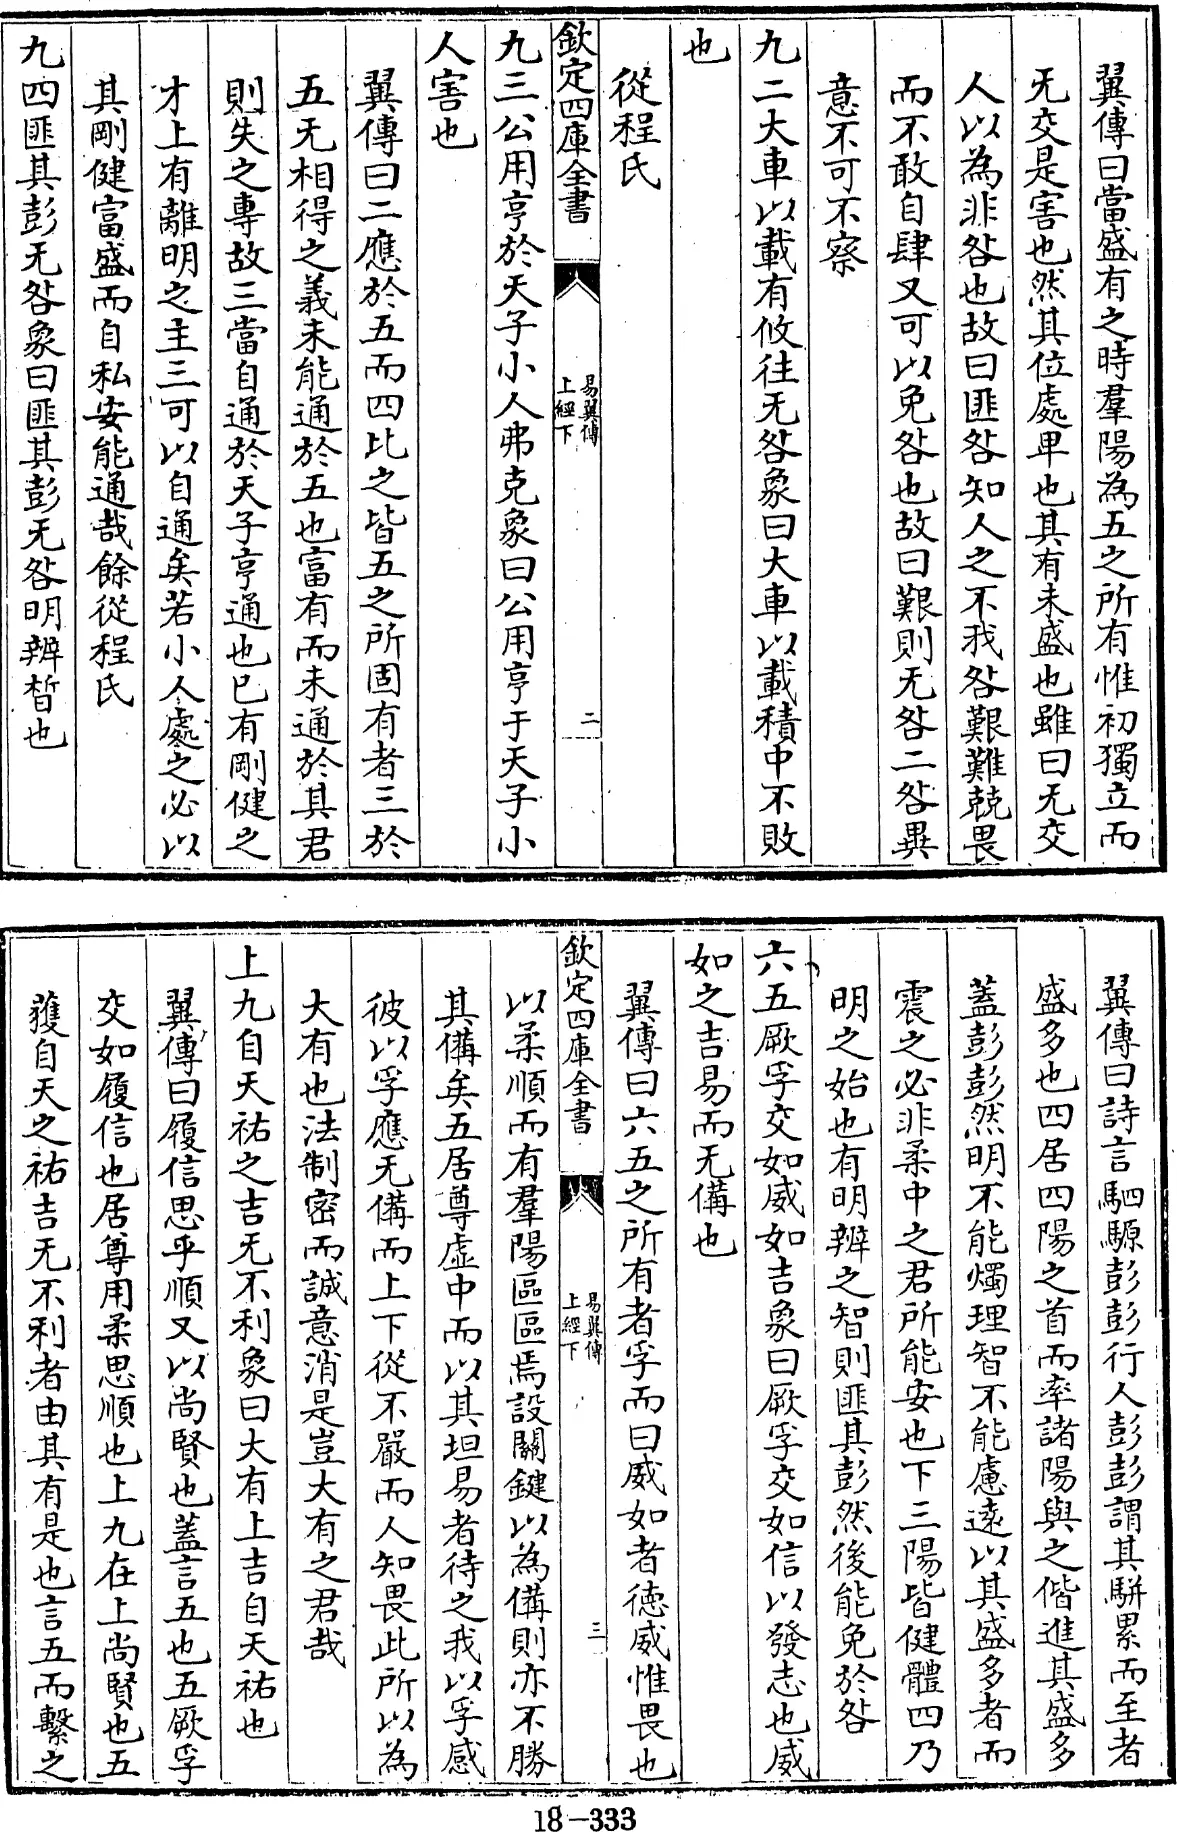 翼傳曰當盛有之時羣陽為五之所有惟初獨立而
无交是害也然其位處卑也其有未盛也雖曰无交
人以為非咎也故曰匪咎知人之不我咎艱難兢畏
而不敢自肆又可以免咎也故曰艱則无咎二咎異
意不可不察
九二大車以載有攸往无咎象曰大車以載積中不敗
也
從程氏
欽定四庫全書
易翼傳
上經下
二
九三公用亨於天子小人弗克象曰公用亨于天子小
人害也
翼傳曰二應於五而四比之皆五之所固有者三於
五无相得之義未能通於五也富有而未通於其君
則失之專故三當自通於天子亨通也已有剛健之
才上有離明之主三可以自通矣若小人處之必以
其剛健富盛而自私安能通哉餘從程氏
九四匪其彭无咎象曰匪其彭无咎明辨晳也
翼傳曰詩言駟騵彭彭行人彭彭謂其駢累而至者
盛多也四居四陽之首而率諸陽與之偕進其盛多
蓋彭彭然明不能燭理智不能慮遠以其盛多者而
震之必非柔中之君所能安也下三陽皆健體四乃
明之始也有明辨之智則匪其彭然後能免於咎
六五厥孚交如威如吉象曰厥孚交如信以發志也威
如之吉易而无備也
翼傳曰六五之所有者孚而曰威如者德威惟畏也
欽定四庫全書
易翼傳
上經下
三
以柔順而有羣陽區區焉設關鍵以為備則亦不勝
其備矣五居尊虛中而以其坦易者待之我以孚感
彼以孚應无備而上下從不嚴而人知畏此所以為
大有也法制密而誠意消是豈大有之君哉
上九自天祐之吉无不利象曰大有上吉自天祐也
翼傳曰履信思乎順又以尚賢也蓋言五也五厥孚
交如履信也居尊用柔思順也上九在上尚賢也五
獲自天之祐吉无不利者由其有是也言五而繫之
18-333